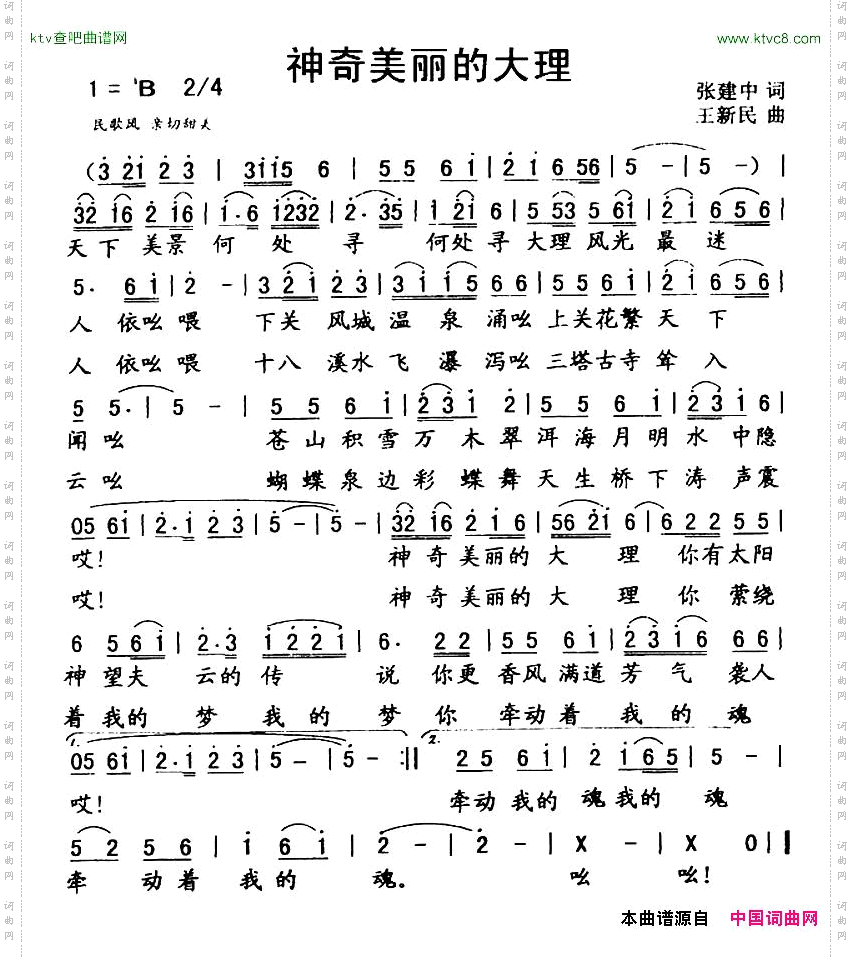 ktv查吧曲谱网
www.ktvc8.com
神奇美丽的大理
1 = ♭B 2/4
张建中 词
王新民 曲
民歌风 亲切甜美
(3 21 2 3 | 3115 6 | 5 5 6 1 | 2 1 6 56 | 5 - | 5 - ) |
32 16 2 16 | 1· 6 1232 | 2· 35 | 1 21 6 | 5 53 5 61 | 2 1 6 5 6 |
天下 美景 何 处 寻 何处 寻 大理 风光 最 迷
5· 6 1 | 2 - | 3 2 1 2 3 | 3 1 1 5 6 6 | 5 5 6 1 | 2 1 6 5 6 |
人 依吆 喂 下关 风城 温 泉 涌吆 上关花繁 天 下
人 依吆 喂 十八 溪水 飞 瀑 泻吆 三塔古寺 耸 入
5 5· | 5 - | 5 5 6 1 | 2 3 1 2 | 5 5 6 1 | 2 3 1 6 |
闻 吆 苍 山 积 雪 万 木 翠 洱 海 月 明 水 中隐
云 吆 蝴 蝶 泉 边 彩 蝶 舞 天 生 桥 下 涛 声震
05 61 | 2· 1 2 3 | 5 - | 5 - | 32 16 2 1 6 | 56 21 6 | 6 2 2 5 5 |
哎! 神 奇 美丽的 大 理 你有太阳
哎! 神 奇 美丽的 大 理 你 萦绕
6 5 6 1 | 2· 3 1 2 2 1 | 6· 2 2 | 5 5 6 1 | 2 3 1 6 6 6 |
神 望夫 云的 传 说 你更 香风 满道 芳 气 袭人
着 我的 梦 我 的 梦 你 牵动 着 我 的 魂
1.
2.
05 61 | 2· 1 2 3 | 5 - | 5 - :|| 2 5 6 1 | 2 1 6 5 | 5 - |
哎! 牵动 我的 魂 我 的 魂
5 2 5 6 | 1 6 1 | 2 - | 2 - | X - | X 0 ||
牵 动着 我 的 魂。 吆 吆!
本曲谱源自 中国词曲网
词曲网